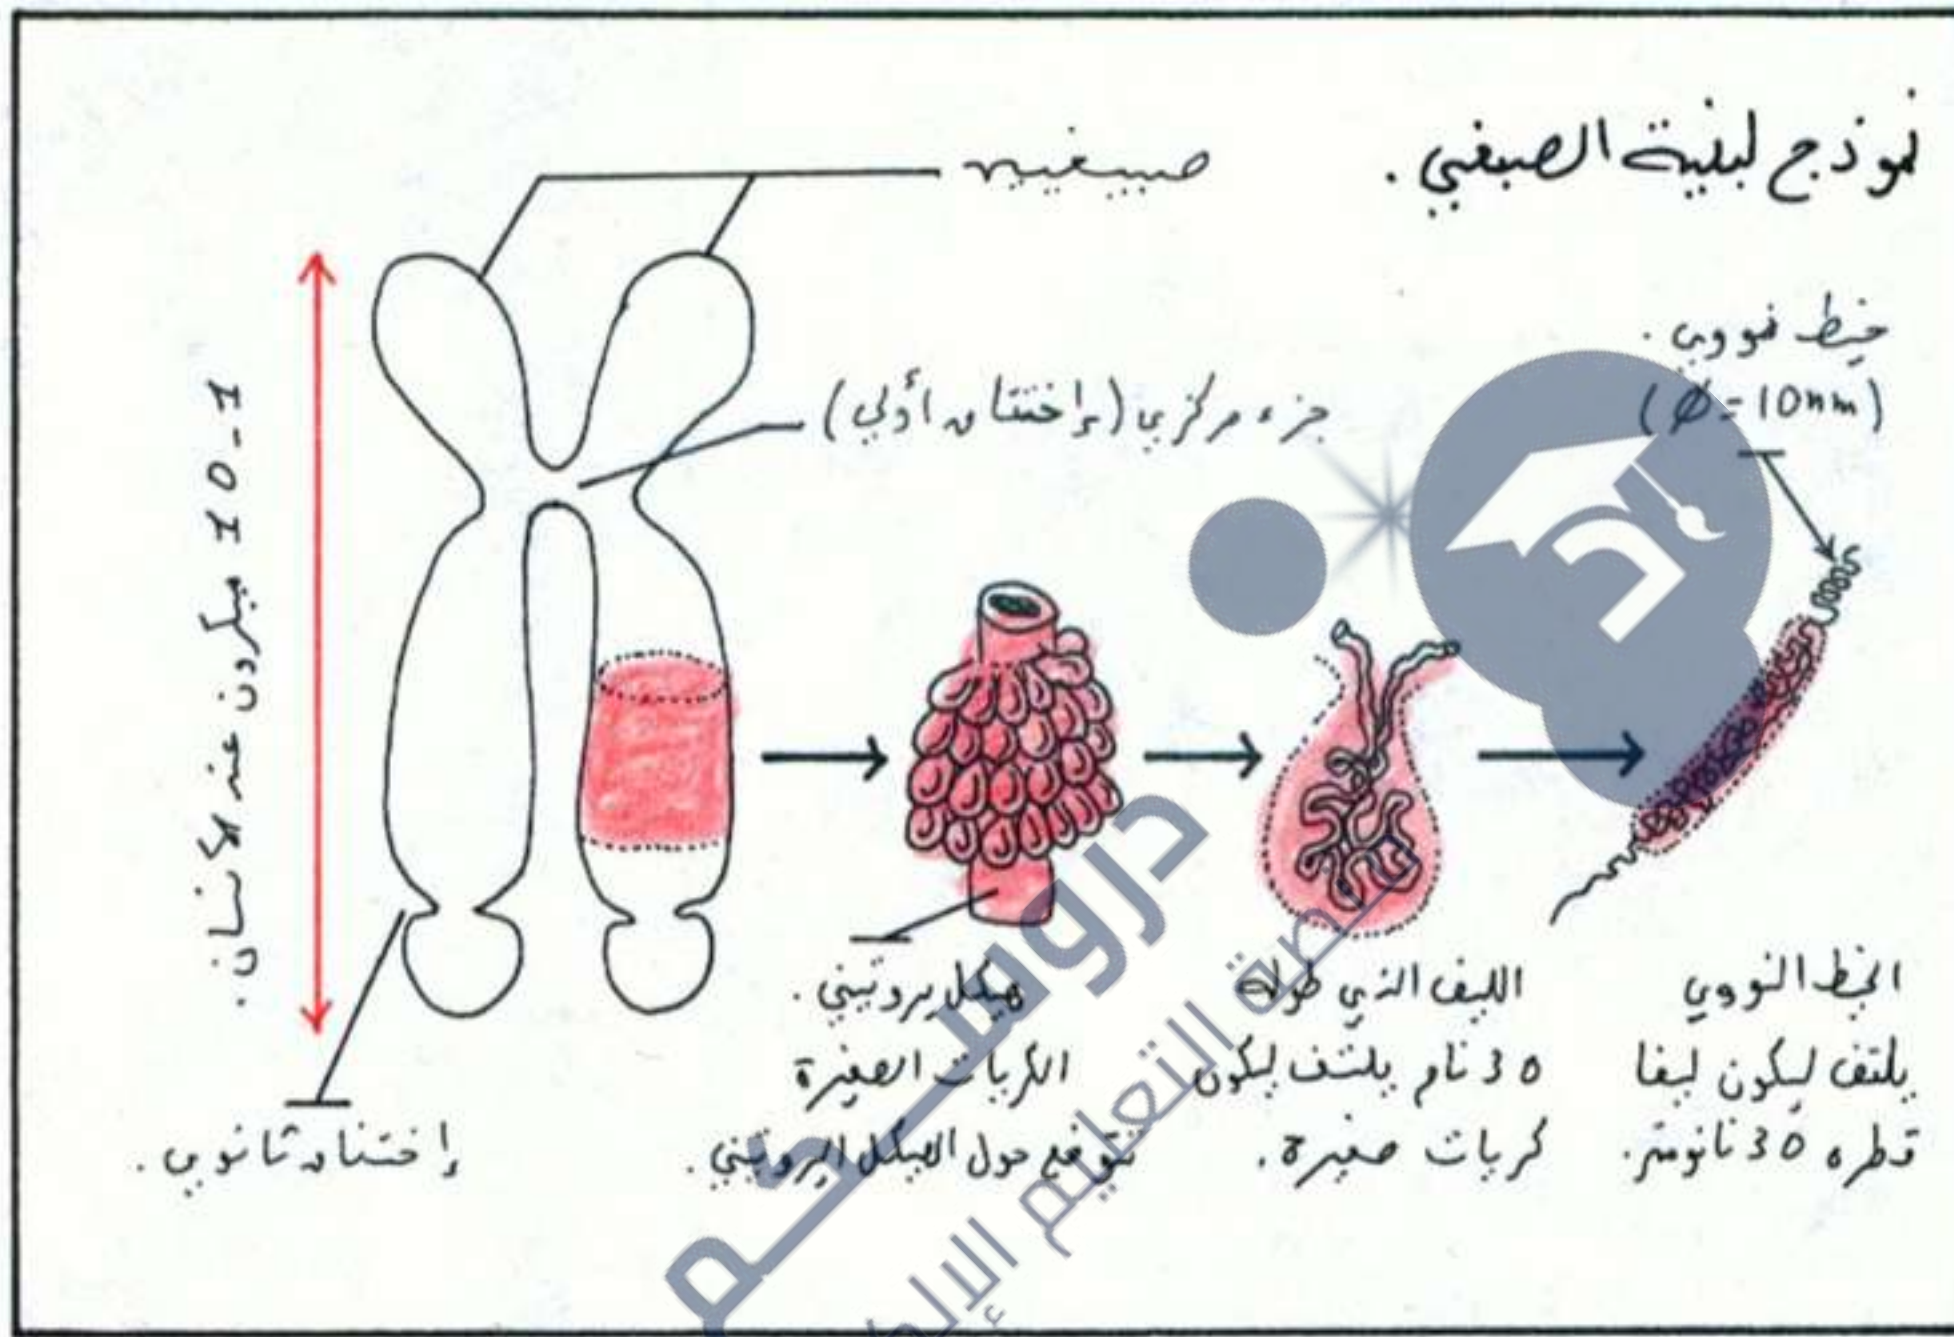 نموذج لبنية الصبغي.
صبيغيين
خيط نووي.
(Ø=10nm)
جزء مركزي (إختناق أولي)
1-10 ميكرون عند الإنسان.
هيكل بروتيني.
الكريات الصغيرة
تتوضع حول الهيكل البروتيني.
الليف الذي طوله
30 نام يلتف ليكون
كريات صغيرة.
الخيط النووي
يلتف ليكون ليفا
قطره 30 نانومتر.
إختناق ثانوي.
دروسكم